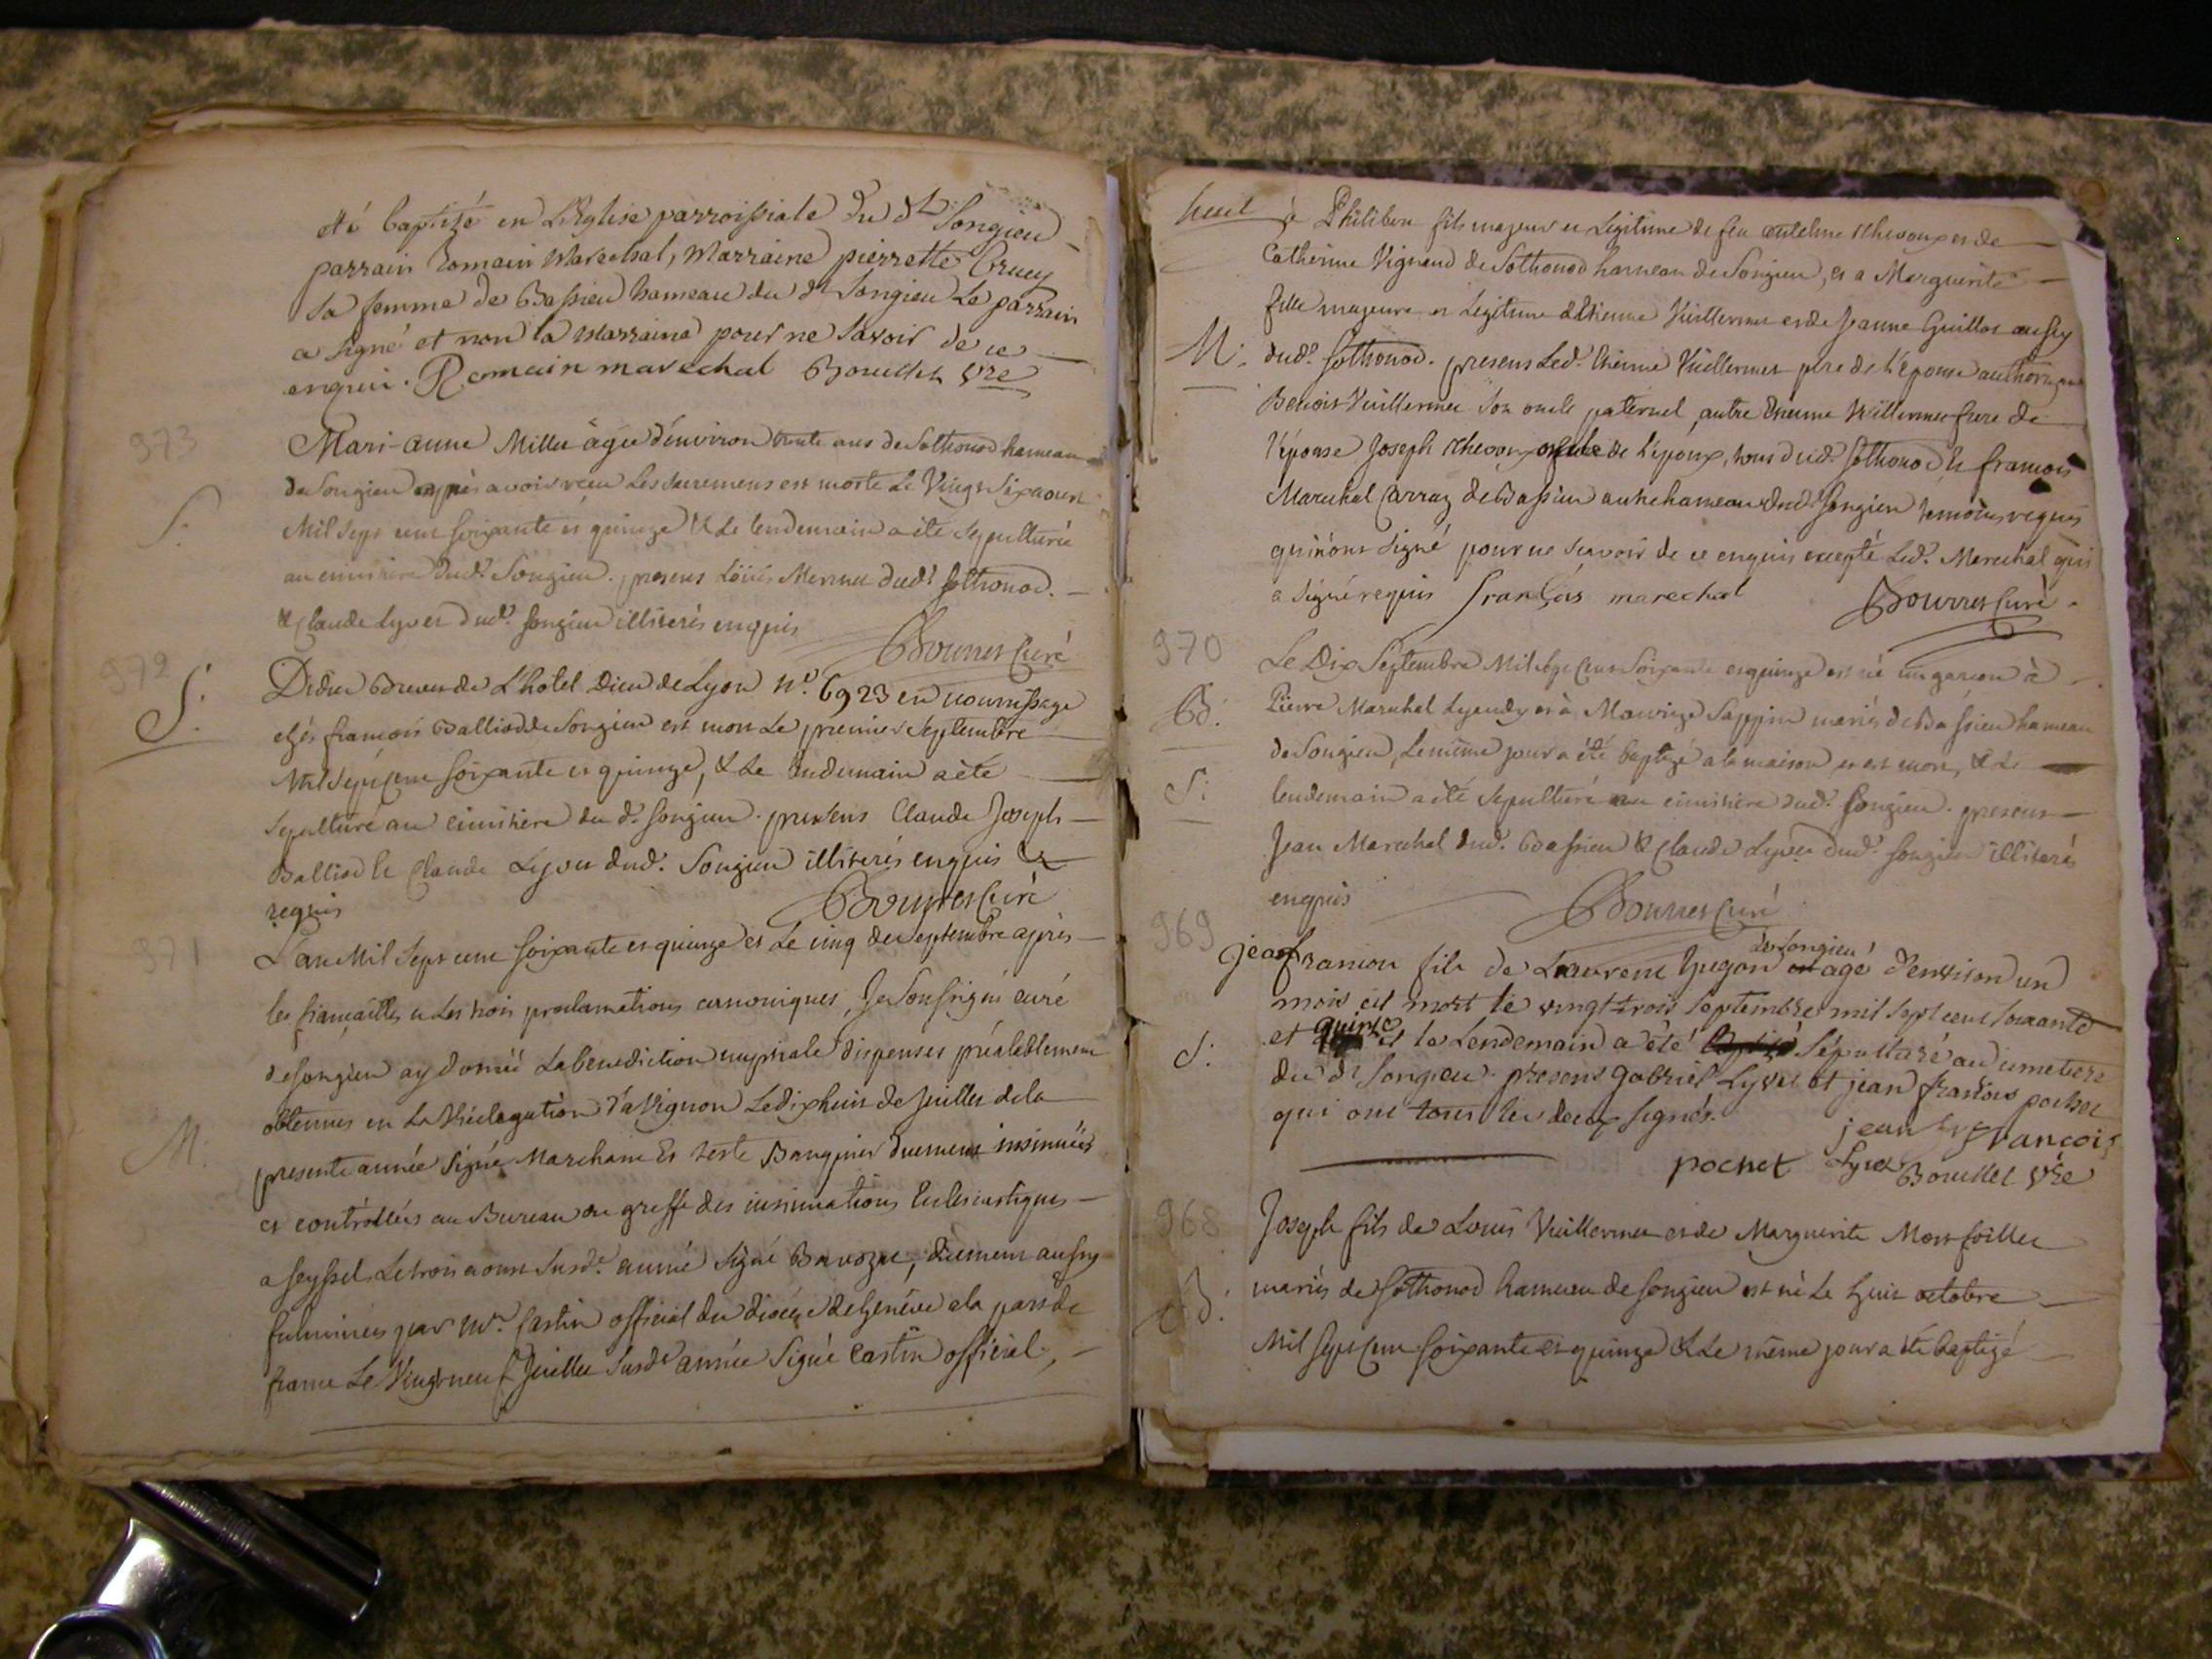 été baptizé en L'Eglise parroissiale du dt Songieu
parrain Romain Marechal, Marraine pierrette Cruey
sa femme de Bassieu hameau du dt Songieu Le parrain
a signé et non la Marraine pour ne savoir de ce
enquis. Romain marechal Bouillet vre
973
Mari-anne Millet âgée d'environ trente ans de Sothonod hameau
de Songieu après avoir reçu Les sacremens est morte Le Vingt Six aoust
S.
Mil Sept cent soixante et quinze & Le lendemain a été sepulturée
au cimitiere dudt Songieu. presens Loüis Mermet dudt Sothonod.
& Claude Lyvet dudt Songieu illiterés enquis
Bourres Curé
972
S.
Didier de L'hotel Dieu de Lyon No. 6923 en nourrissage
chés françois Balliod de Songieu est mort Le premier Septembre
Mil Sept Cent soixante et quinze, & Le lendemain a été
sepulturé au cimitiere du dt Songieu. presens Claude Joseph
Balliod & Claude Lyvet dudt. Songieu illiterés enquis &
requis
Bourres Curé
971
L'an Mil Sept cent soixante et quinze et Le cinq de Septembre après
les fiançailles et Les trois proclamations canoniques, Je soussigné curé
de Songieu ay donné La benediction nuptiale dispenses préalablement
obtenues en La Vicelegation d'aVignon Le dix huit de Juillet de la
M.
presente année signé Marchand Et teste Banquier duement insinuées
et contrôllées au Bureau ou greffe des insinuations Ecclesiastiques
a seyssel Le trois aoust susdte année signé Bavozat, duement aussy
fulminées par Mr. Castin official du diocèse de Genéve a la part de
france Le Vingt neuf Juillet susdte année signé Castin official,
huit
à Philibert fils majeur et Légitime de feu antelme Chevoux et de
Catherine Vignand de Sothonod hameau de Songieu, et a Marguerite
fille majeure et Légitime d'Etienne Vuillermet et de Jeanne Guillot aussy
M.
dudt Sothonod. presens Ledt. Etienne Vuillermet pere de l'épouse
Benoit Vuillermet son oncle paternel, autre Etienne Vuillermet frere de
l'épouse Joseph Chevoux oncle de l'époux, tous dudt. Sothonod & françois
Marechal Carraz de Bassieu autre hameau dudt Songieu témoins requis
qui n'ont signé pour ne sçavoir de ce enquis excepté Ledt. Marechal qui
a signé requis françois marechal
Bourres Curé.
970
Le Dix Septembre Mil Sept Cent Soixante et quinze est né un garcon à
B.
Pierre Marechal Lyaudy et à Maurize Sappin mariés de Bassieu hameau
de Songieu, Le même jour a été baptizé a la maison et est mort, & Le
S.
lendemain a été sepulturé au cimitiere dudt. Songieu. presens
Jean Marechal dudt. Bassieu & Claude Lyvet dudt. Songieu illiterés
enquis
Bourres Curé
969
de Songieu
jean francois fils de Laurent hugon agé d'environ un
mois est mort le vingt trois septembre mil sept cent soixante
et quinze et le Lendemain a été sépulturé au cimetiere
S.
du dt Songieu. présens gabriel Lyvet et jean françois pochet
qui ont tous les deux signés.
jean françois
pochet Lyvet Bouillet vre
968
Joseph fils de Louis Vuillermet et de Marguerite Montfoillet
B.
mariés de Sothonod hameau de Songieu est né Le huit octobre
Mil Sept Cent soixante et quinze & Le même jour a été baptizé